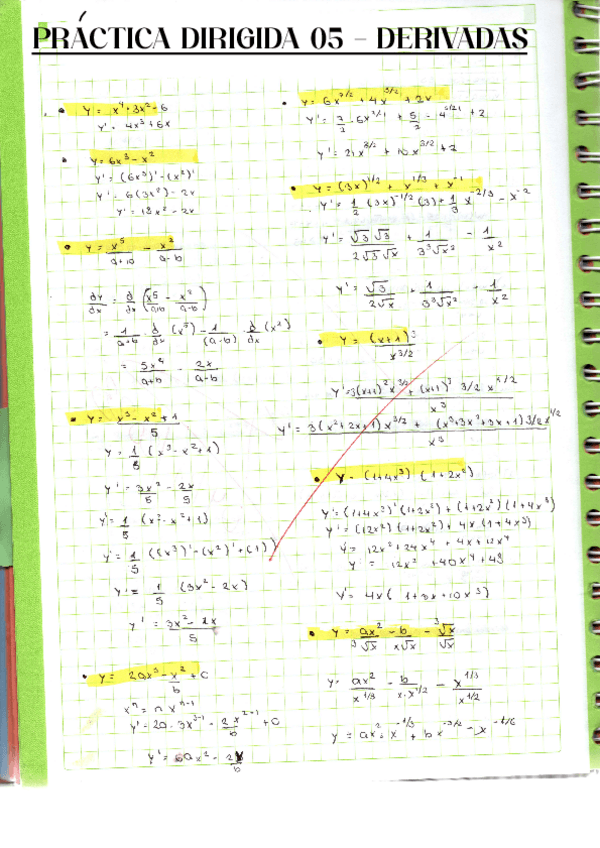 PRÁCTICA DIRIGIDA 05 - DERIVADAS
• y = x⁴+3x²-6
y' = 4x³+6x
• y = 6x³ - x²
y' = (6x³)' - (x²)'
y' = 6(3x²) - 2x
y' = 18x² - 2x
• y = x⁵/(a+b) - x²/(a-b)
dy/dx = d/dx (x⁵/(a+b) - x²/(a-b))
= 1/(a+b) d/dx (x⁵) - 1/(a-b) d/dx (x²)
= 5x⁴/(a+b) - 2x/(a-b)
• y = (x³ - x² + 1)/5
y = 1/5 (x³ - x² + 1)
y' = 3x²/5 - 2x/5
y' = 1/5 (x³ - x² + 1)
y' = 1/5 ((x³)' - (x²)' + (1)')
y' = 1/5 (3x² - 2x)
y' = (3x² - 2x)/5
• y = 2ax³ - x²/b + c
xⁿ = n xⁿ⁻¹
y' = 2a · 3x³⁻¹ - 2x²⁻¹/b + c
y' = 6ax² - 2x/b
• y = 6x^7/2 + 4x^5/2 + 2x
y' = 21x^5/2 + 10x^3/2 + 2
• y = (3x)^1/2 + x^1/3 + x^-1
y' = 1/2 (3x)^-1/2 (3) + 1/3 x^-2/3 - x^-2
y' = √3 √3/(2√3 √x) + 1/(3 ³√x²) - 1/x²
y' = √3/(2√x) + 1/(3 ³√x²) - 1/x²
• y = (x+1)³/x^3/2
y' = (3(x+1)² x^3/2 + (x+1)³ 3/2 x^1/2)/x³
y' = (3(x²+2x+1) x^3/2 + (x³+3x²+3x+1) 3/2 x^1/2)/x³
• y = (1+4x³) (1+2x²)
y' = (1+4x³)' (1+2x²) + (1+2x²)' (1+4x³)
y' = (12x²) (1+2x²) + 4x (1+4x³)
y' = 12x² + 24x⁴ + 4x + 12x⁴
y' = 12x² + 40x⁴ + 4x
y' = 4x (1+3x+10x³)
• y = ax²/³√x - b/x√x - ³√x/√x
y = ax²/x^1/3 - b/x·x^1/2 - x^1/3/x^1/2
y = ax² · x^-1/3 + bx^-3/2 - x^-1/6